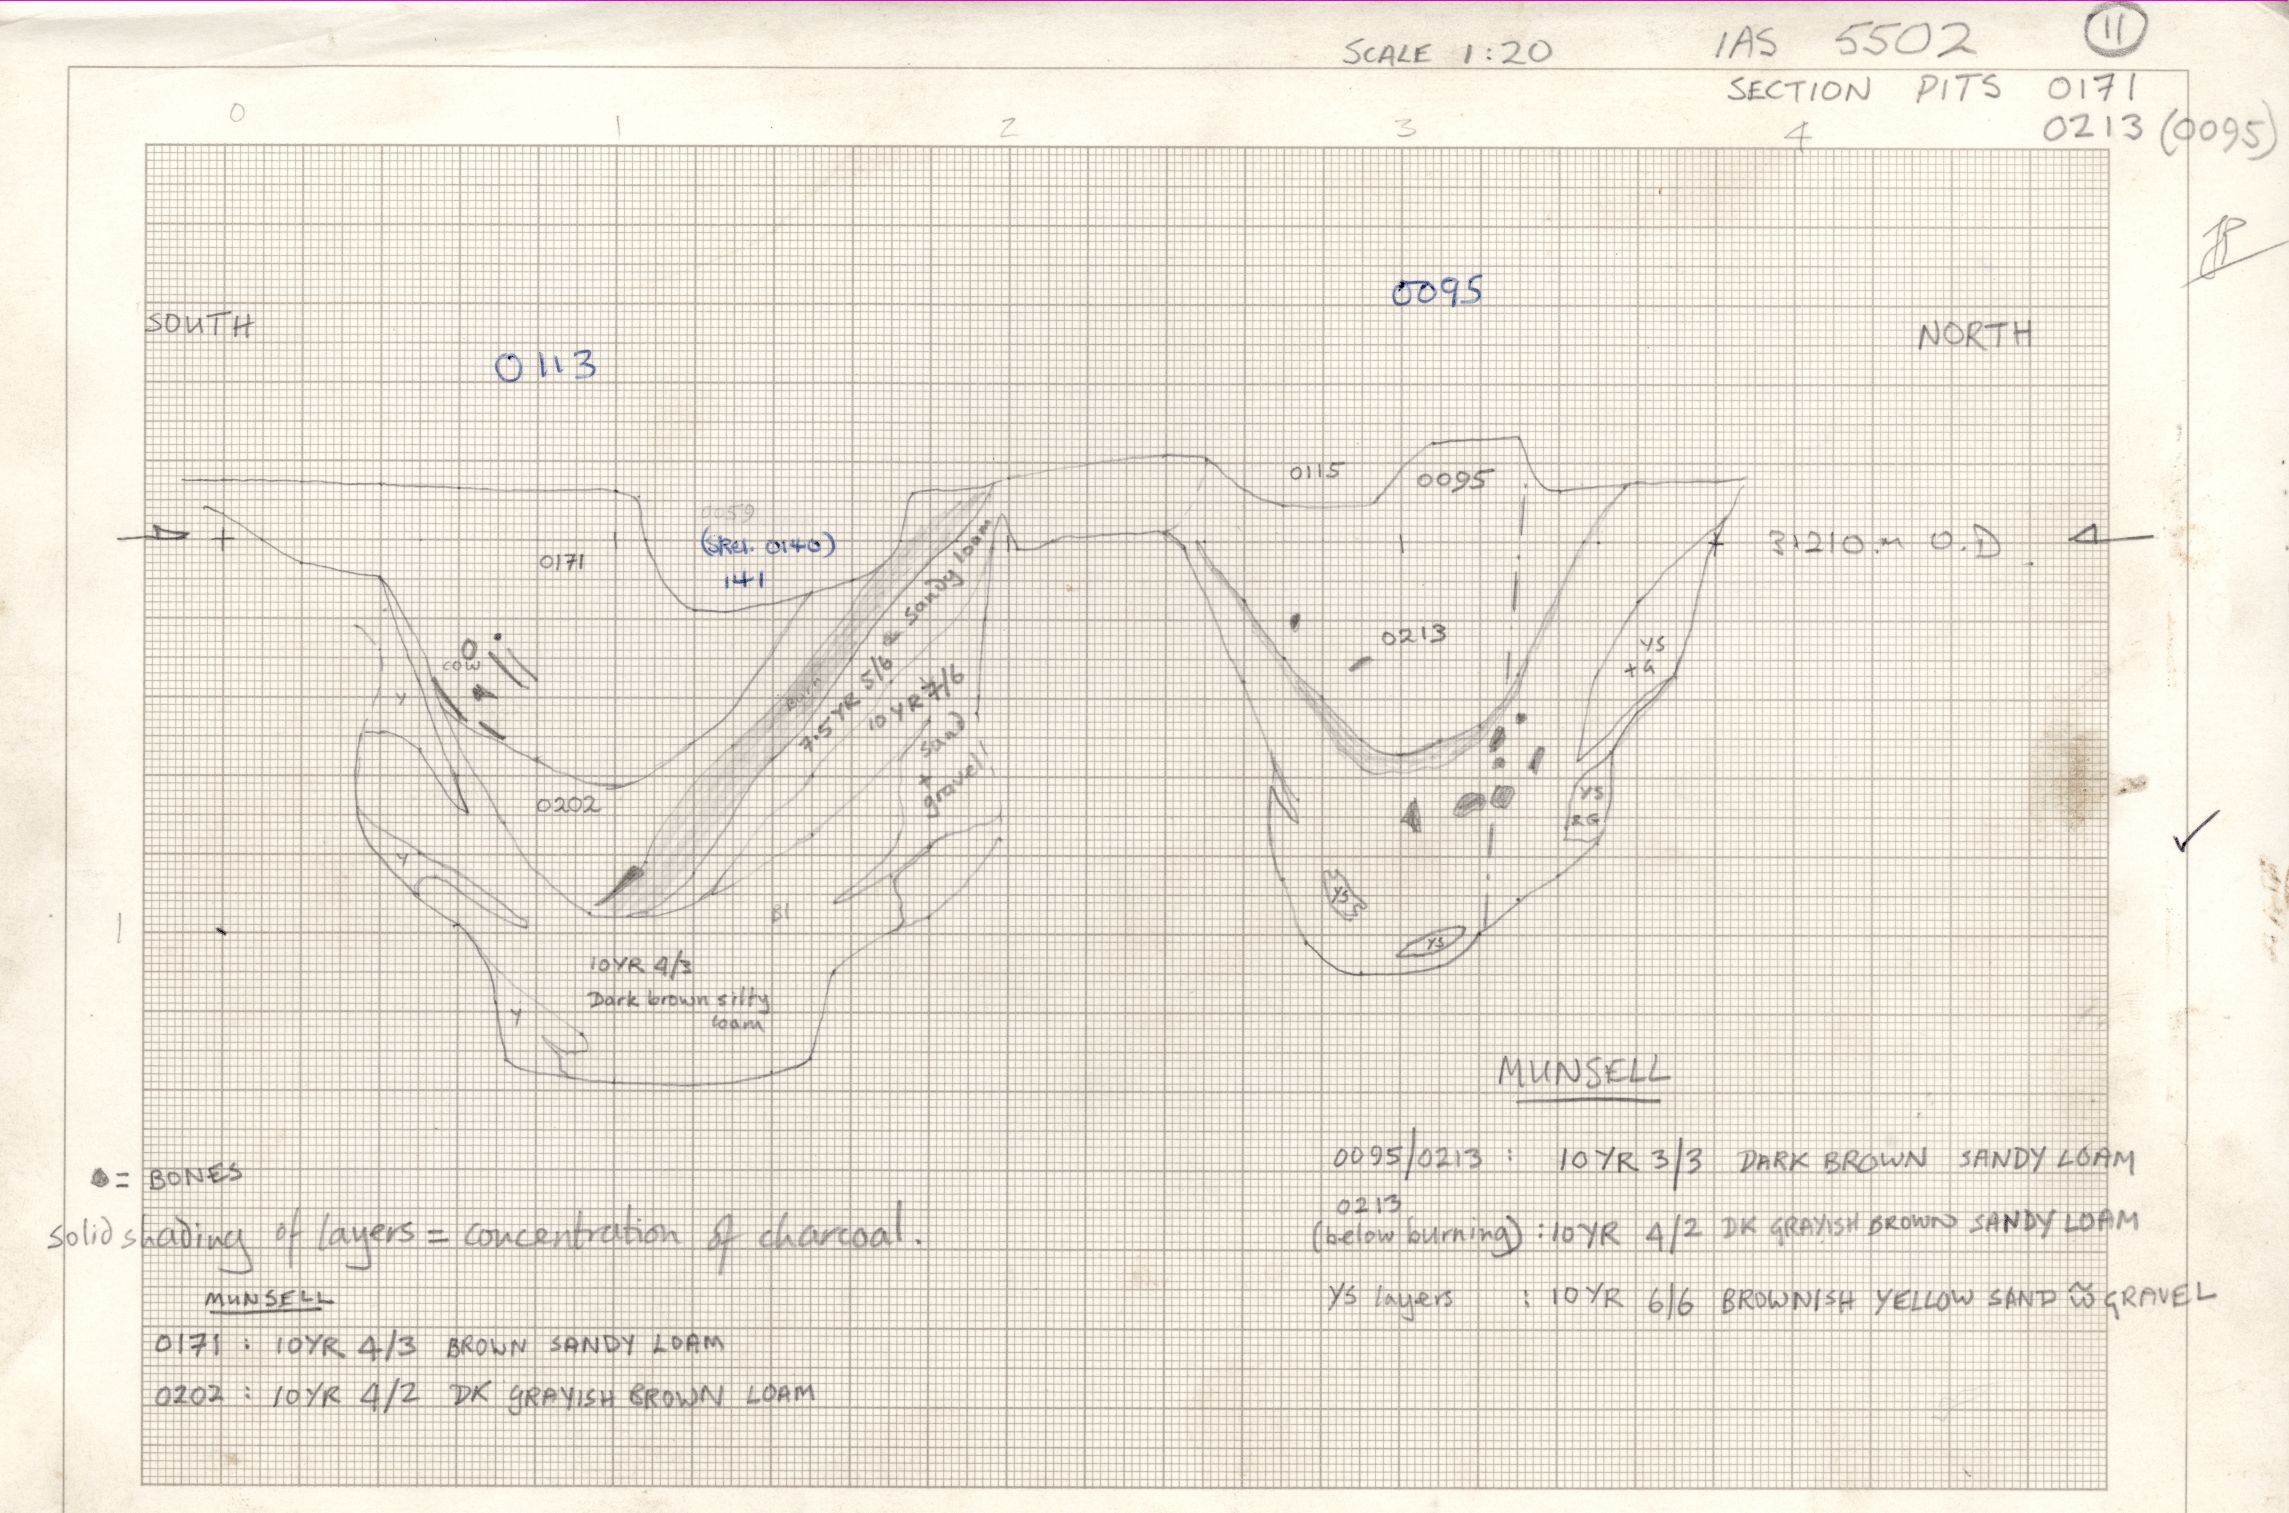 SCALE 1:20
IAS 5502
11
SECTION PITS 0171
0213 (0095)
0
1
2
3
4
0095
SOUTH
NORTH
0113
0115
0095
0059
(Skel. 0140)
141
0171
31210m O.D
sandy loam
0213
COW
Y
YS
+G
Burn
7.5 YR 5/6
10 YR 7/6
sand
+
gravel
0202
YS
&G
Y
YS
BI
1
YS
10YR 4/3
Dark brown silty
loam
Y
MUNSELL
0095/0213 : 10YR 3/3 DARK BROWN SANDY LOAM
= BONES
0213
(below burning) : 10YR 4/2 DK GRAYISH BROWN SANDY LOAM
Solid shading of layers = concentration of charcoal.
YS layers : 10YR 6/6 BROWNISH YELLOW SAND & GRAVEL
MUNSELL
0171 : 10YR 4/3 BROWN SANDY LOAM
0202 : 10YR 4/2 DK GRAYISH BROWN LOAM